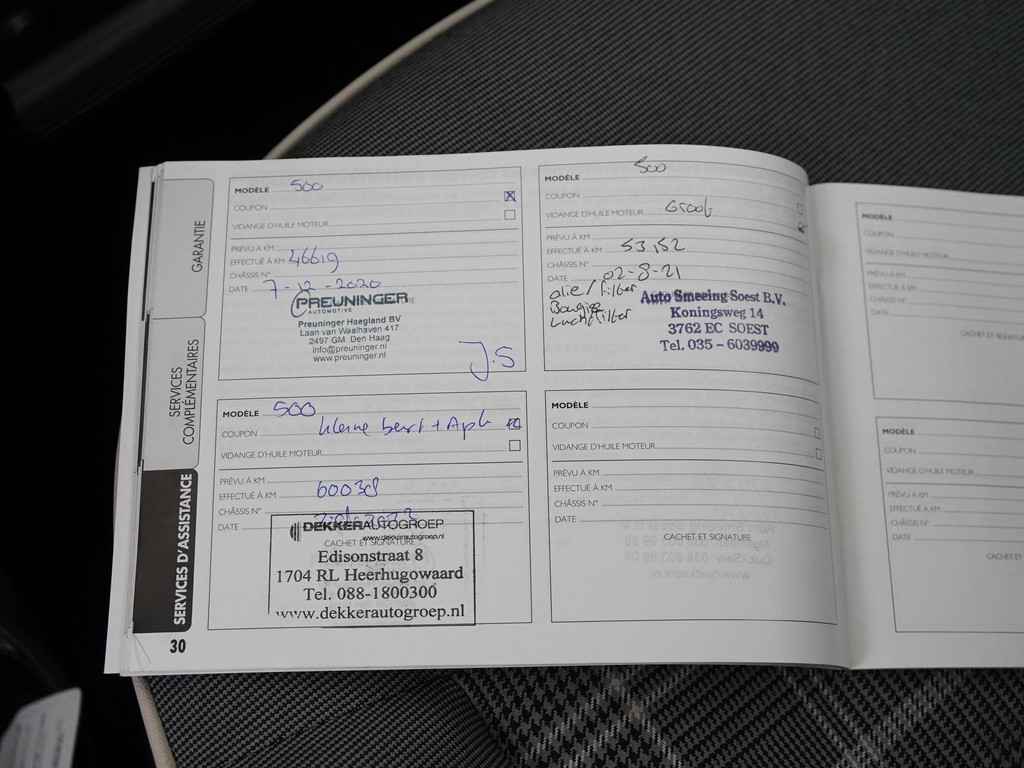 GARANTIE
SERVICES
COMPLÉMENTAIRES
SERVICES D'ASSISTANCE
30
MODÈLE 500
COUPON
VIDANGE D'HUILE MOTEUR
PRÉVU À KM
EFFECTUÉ À KM 46619
CHÂSSIS N°
DATE 7-12-2020
PREUNINGER
AUTOMOTIVE
Preuninger Haagland BV
Laan van Waalhaven 417
2497 GM Den Haag
info@preuninger.nl
www.preuninger.nl
J.S
MODÈLE 500
COUPON
VIDANGE D'HUILE MOTEUR Groot
PRÉVU À KM
EFFECTUÉ À KM 53,152
CHÂSSIS N°
DATE 02-8-21
olie/filter
Bougies
Luchtfilter
Auto Smeeing Soest B.V.
Koningsweg 14
3762 EC SOEST
Tel. 035 - 6039999
MODÈLE 500
COUPON kleine beurt + Apk
VIDANGE D'HUILE MOTEUR
PRÉVU À KM
EFFECTUÉ À KM 60038
CHÂSSIS N°
DATE
DEKKERAUTOGROEP
www.dekkerautogroep.nl
CACHET ET SIGNATURE
Edisonstraat 8
1704 RL Heerhugowaard
Tel. 088-1800300
www.dekkerautogroep.nl
MODÈLE
COUPON
VIDANGE D'HUILE MOTEUR
PRÉVU À KM
EFFECTUÉ À KM
CHÂSSIS N°
DATE
CACHET ET SIGNATURE
MODÈLE
COUPON
VIDANGE D'HUILE MOTEUR
PRÉVU À KM
EFFECTUÉ À KM
CHÂSSIS N°
DATE
CACHET ET SIGNATURE
MODÈLE
COUPON
VIDANGE D'HUILE MOTEUR
PRÉVU À KM
EFFECTUÉ À KM
CHÂSSIS N°
DATE
CACHET ET